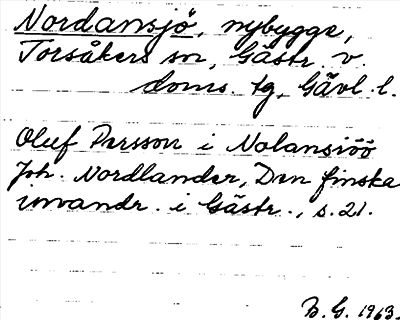 Nordansjö, nybygge,
Torsåkers sn, Gästr. v.
doms. tg, Gävl. l.
Oluf Persson i Nolansiöö
Joh. Nordlander, Den finska
invandr. i Gästr., s. 21.
B. G. 1963.